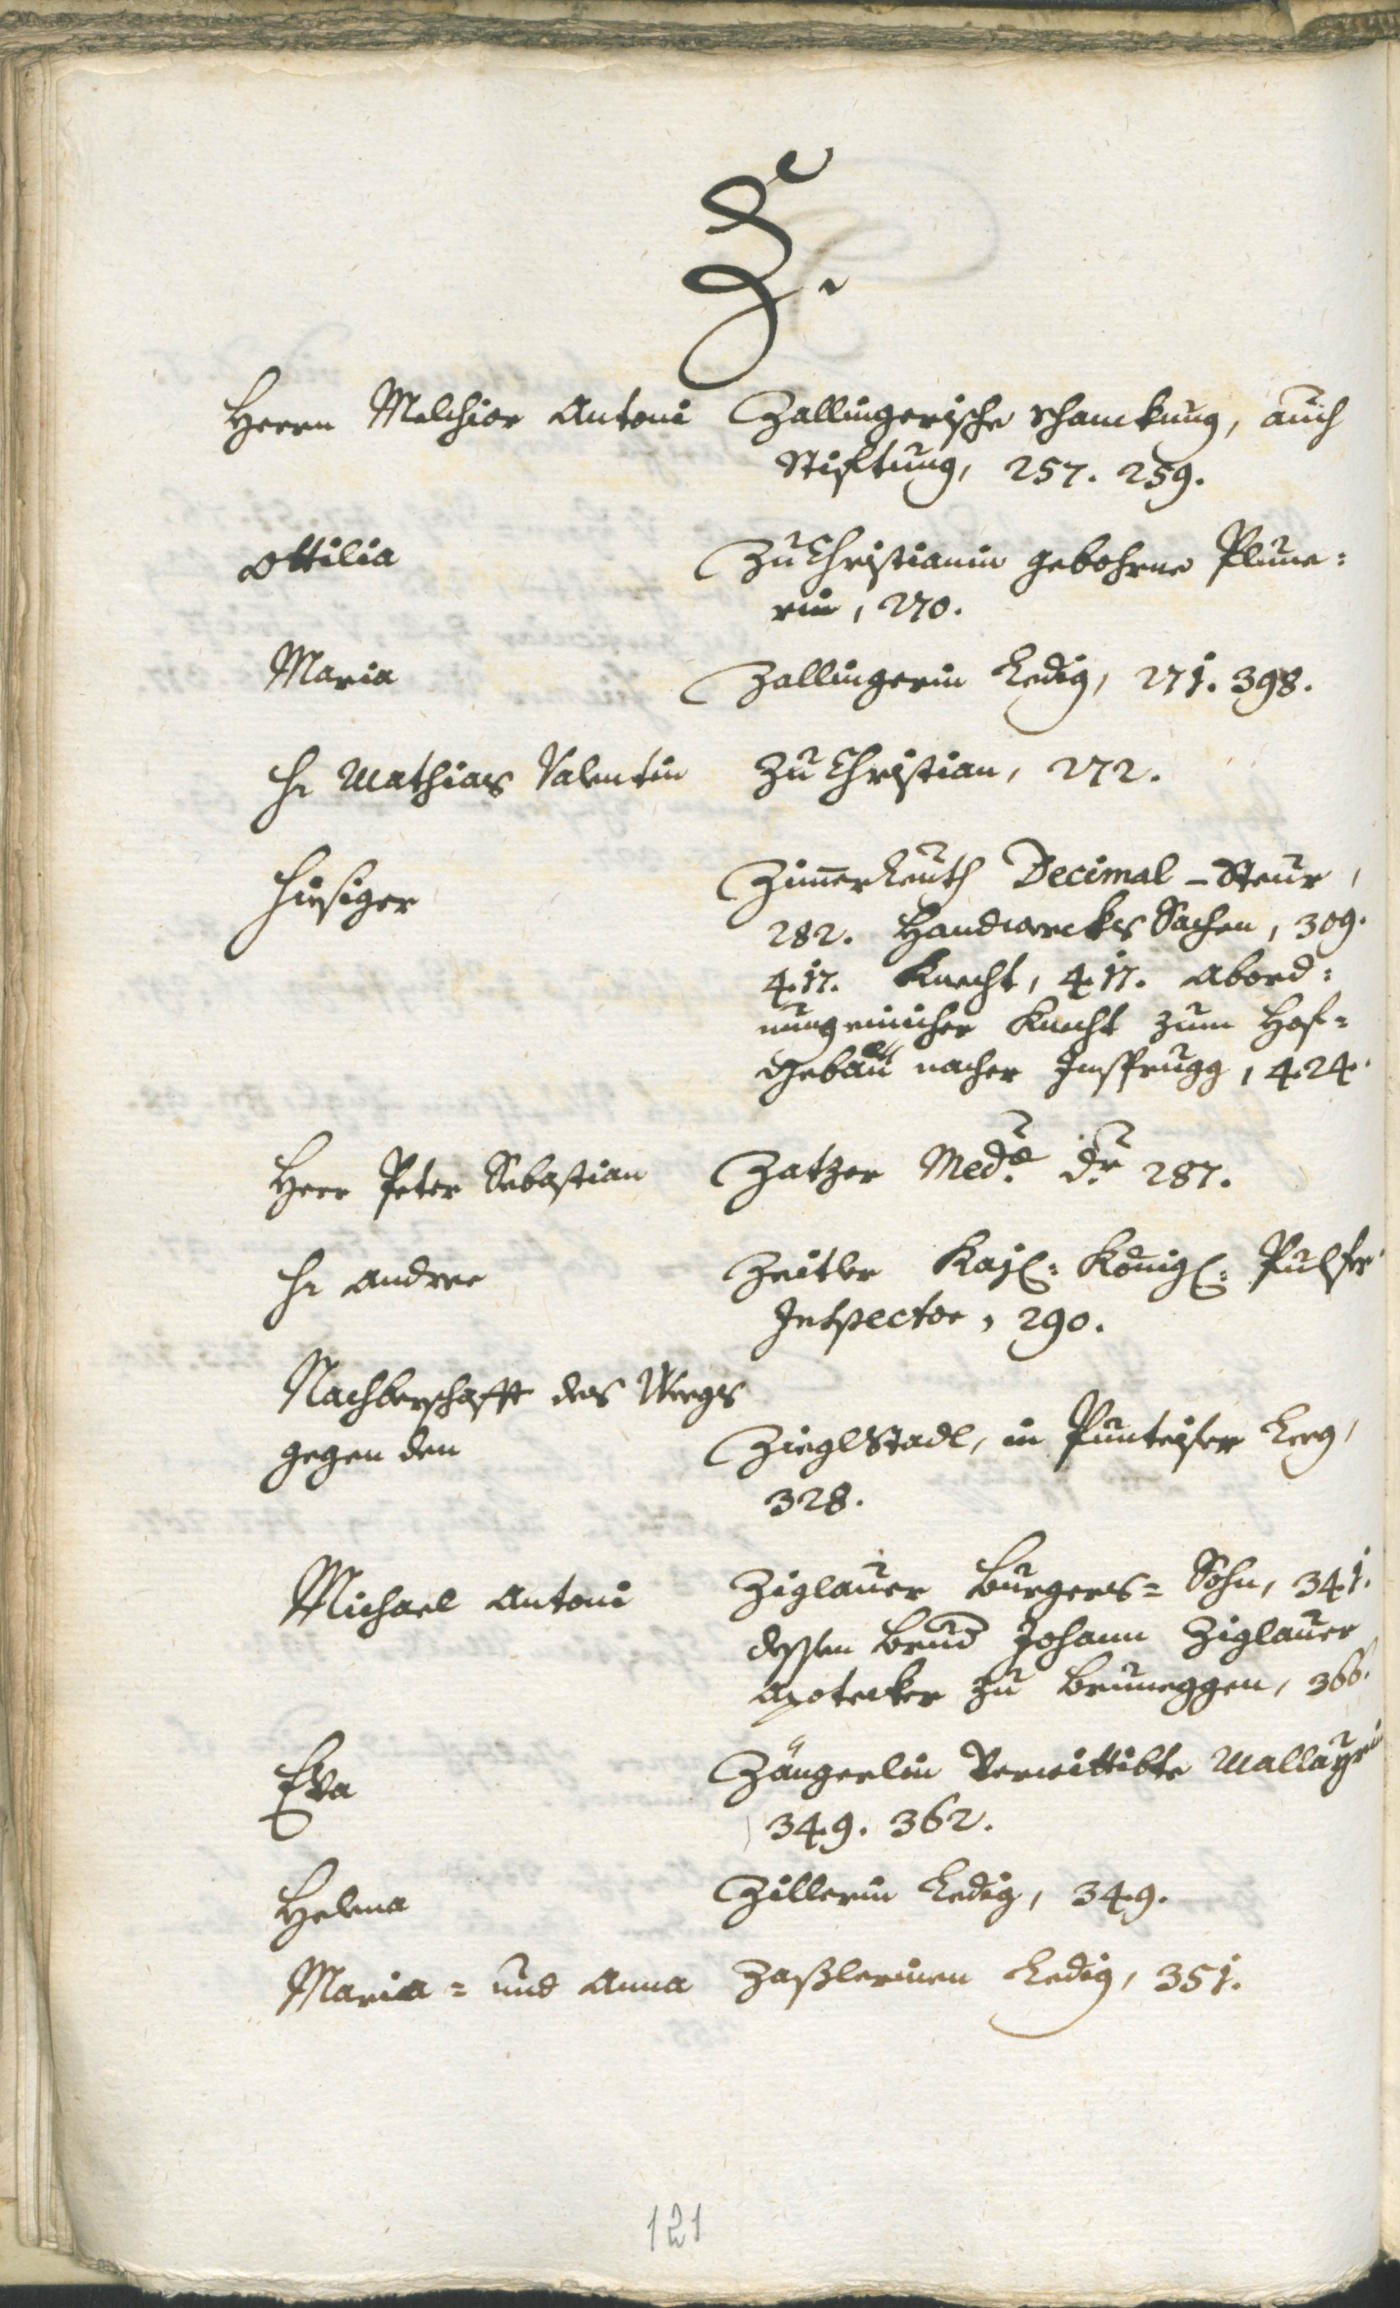 Z.
Herrn Melchior Antoni Zallingerische Schanckung, auch
Stifftung, 257. 259.
Ottilia Zu Christianin gebohrne Plune=
rin, 270.
Maria Zallingerin Ledig, 271. 398.
Hr Mathias Valentin Zu Christian, 272.
Hiesiger Zimerleuth Decimal-Steur,
282. Handwercks Sachen, 309.
417. Knecht, 417. Abord=
nung einicher Knecht zum Hof=
Gebäu nacher Insprugg, 424.
Herr Peter Sebastian Zatzer Med: Dr 287.
Hr Andree Zeitler Kayl: Königl: Pulfer
Inspector, 290.
Nachberschafft des Weegs
gegen den Ziegl Stadl, in Punteiser Leeg,
328.
Michael Antoni Ziglauer Burgers= Sohn, 341.
dessen Brud Johann Ziglauer
Apotecker zu Bruneggen, 366.
Eva Zängerlin Verwittibte Mallayrin
349. 362.
Helena Zillerin Ledig, 349.
Maria= und Anna Zaßlerinen Ledig, 351.
121